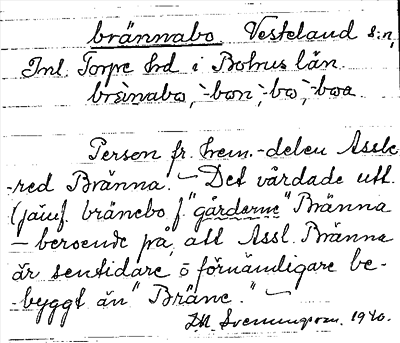 brännabo Vesteland s:n,
Inl. Torpe hd i Bohus län.
brsinabo, -bon, -bo, -boa
Person fr. hem.-delen Assle
-red Bränna. — Det vårdade utt.
(jämf. bränebo f. "gårderne" Bränna
— beroende på, att Assl. Bränna
är sentidare o förnämligare be-
-byggt än "Bräne." —
Svenningson. 1920.